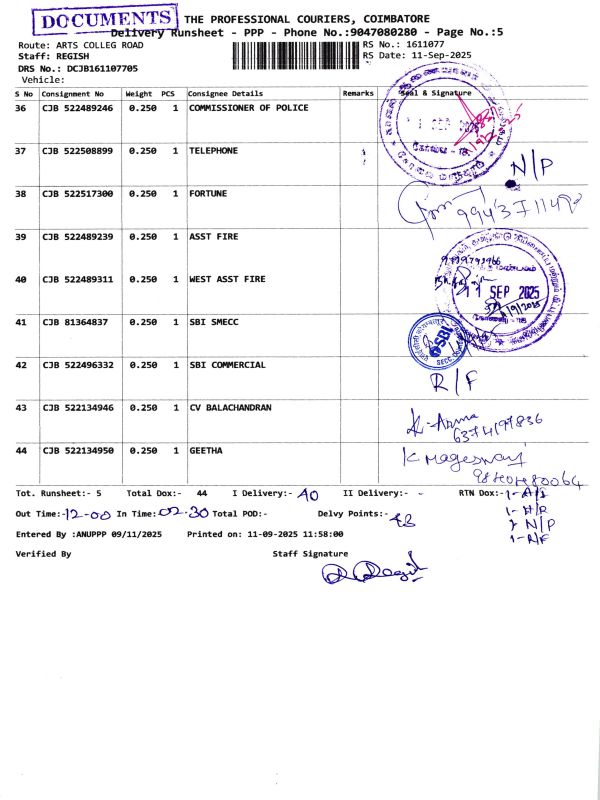 DOCUMENTS
THE PROFESSIONAL COURIERS, COIMBATORE
Delivery Runsheet - PPP - Phone No.:9047080280 - Page No.:5
Route: ARTS COLLEG ROAD RS No.: 1611077
Staff: REGISH RS Date: 11-Sep-2025
DRS No.: DCJB161107705
Vehicle:
S No Consignment No Weight PCS Consignee Details Remarks Seal & Signature
36 CJB 522489246 0.250 1 COMMISSIONER OF POLICE
37 CJB 522508899 0.250 1 TELEPHONE N/P
38 CJB 522517300 0.250 1 FORTUNE
39 CJB 522489239 0.250 1 ASST FIRE
40 CJB 522489311 0.250 1 WEST ASST FIRE SEP 2025
41 CJB 81364837 0.250 1 SBI SMECC SBI
42 CJB 522496332 0.250 1 SBI COMMERCIAL R/F
43 CJB 522134946 0.250 1 CV BALACHANDRAN
44 CJB 522134950 0.250 1 GEETHA
Tot. Runsheet:- 5 Total Dox:- 44 I Delivery:- 40 II Delivery:- - RTN Dox:-
Out Time:-12-00 In Time:02.30 Total POD:- Delvy Points:- 43
N/P
Entered By :ANUPPP 09/11/2025 Printed on: 11-09-2025 11:58:00
1-R/F
Verified By Staff Signature